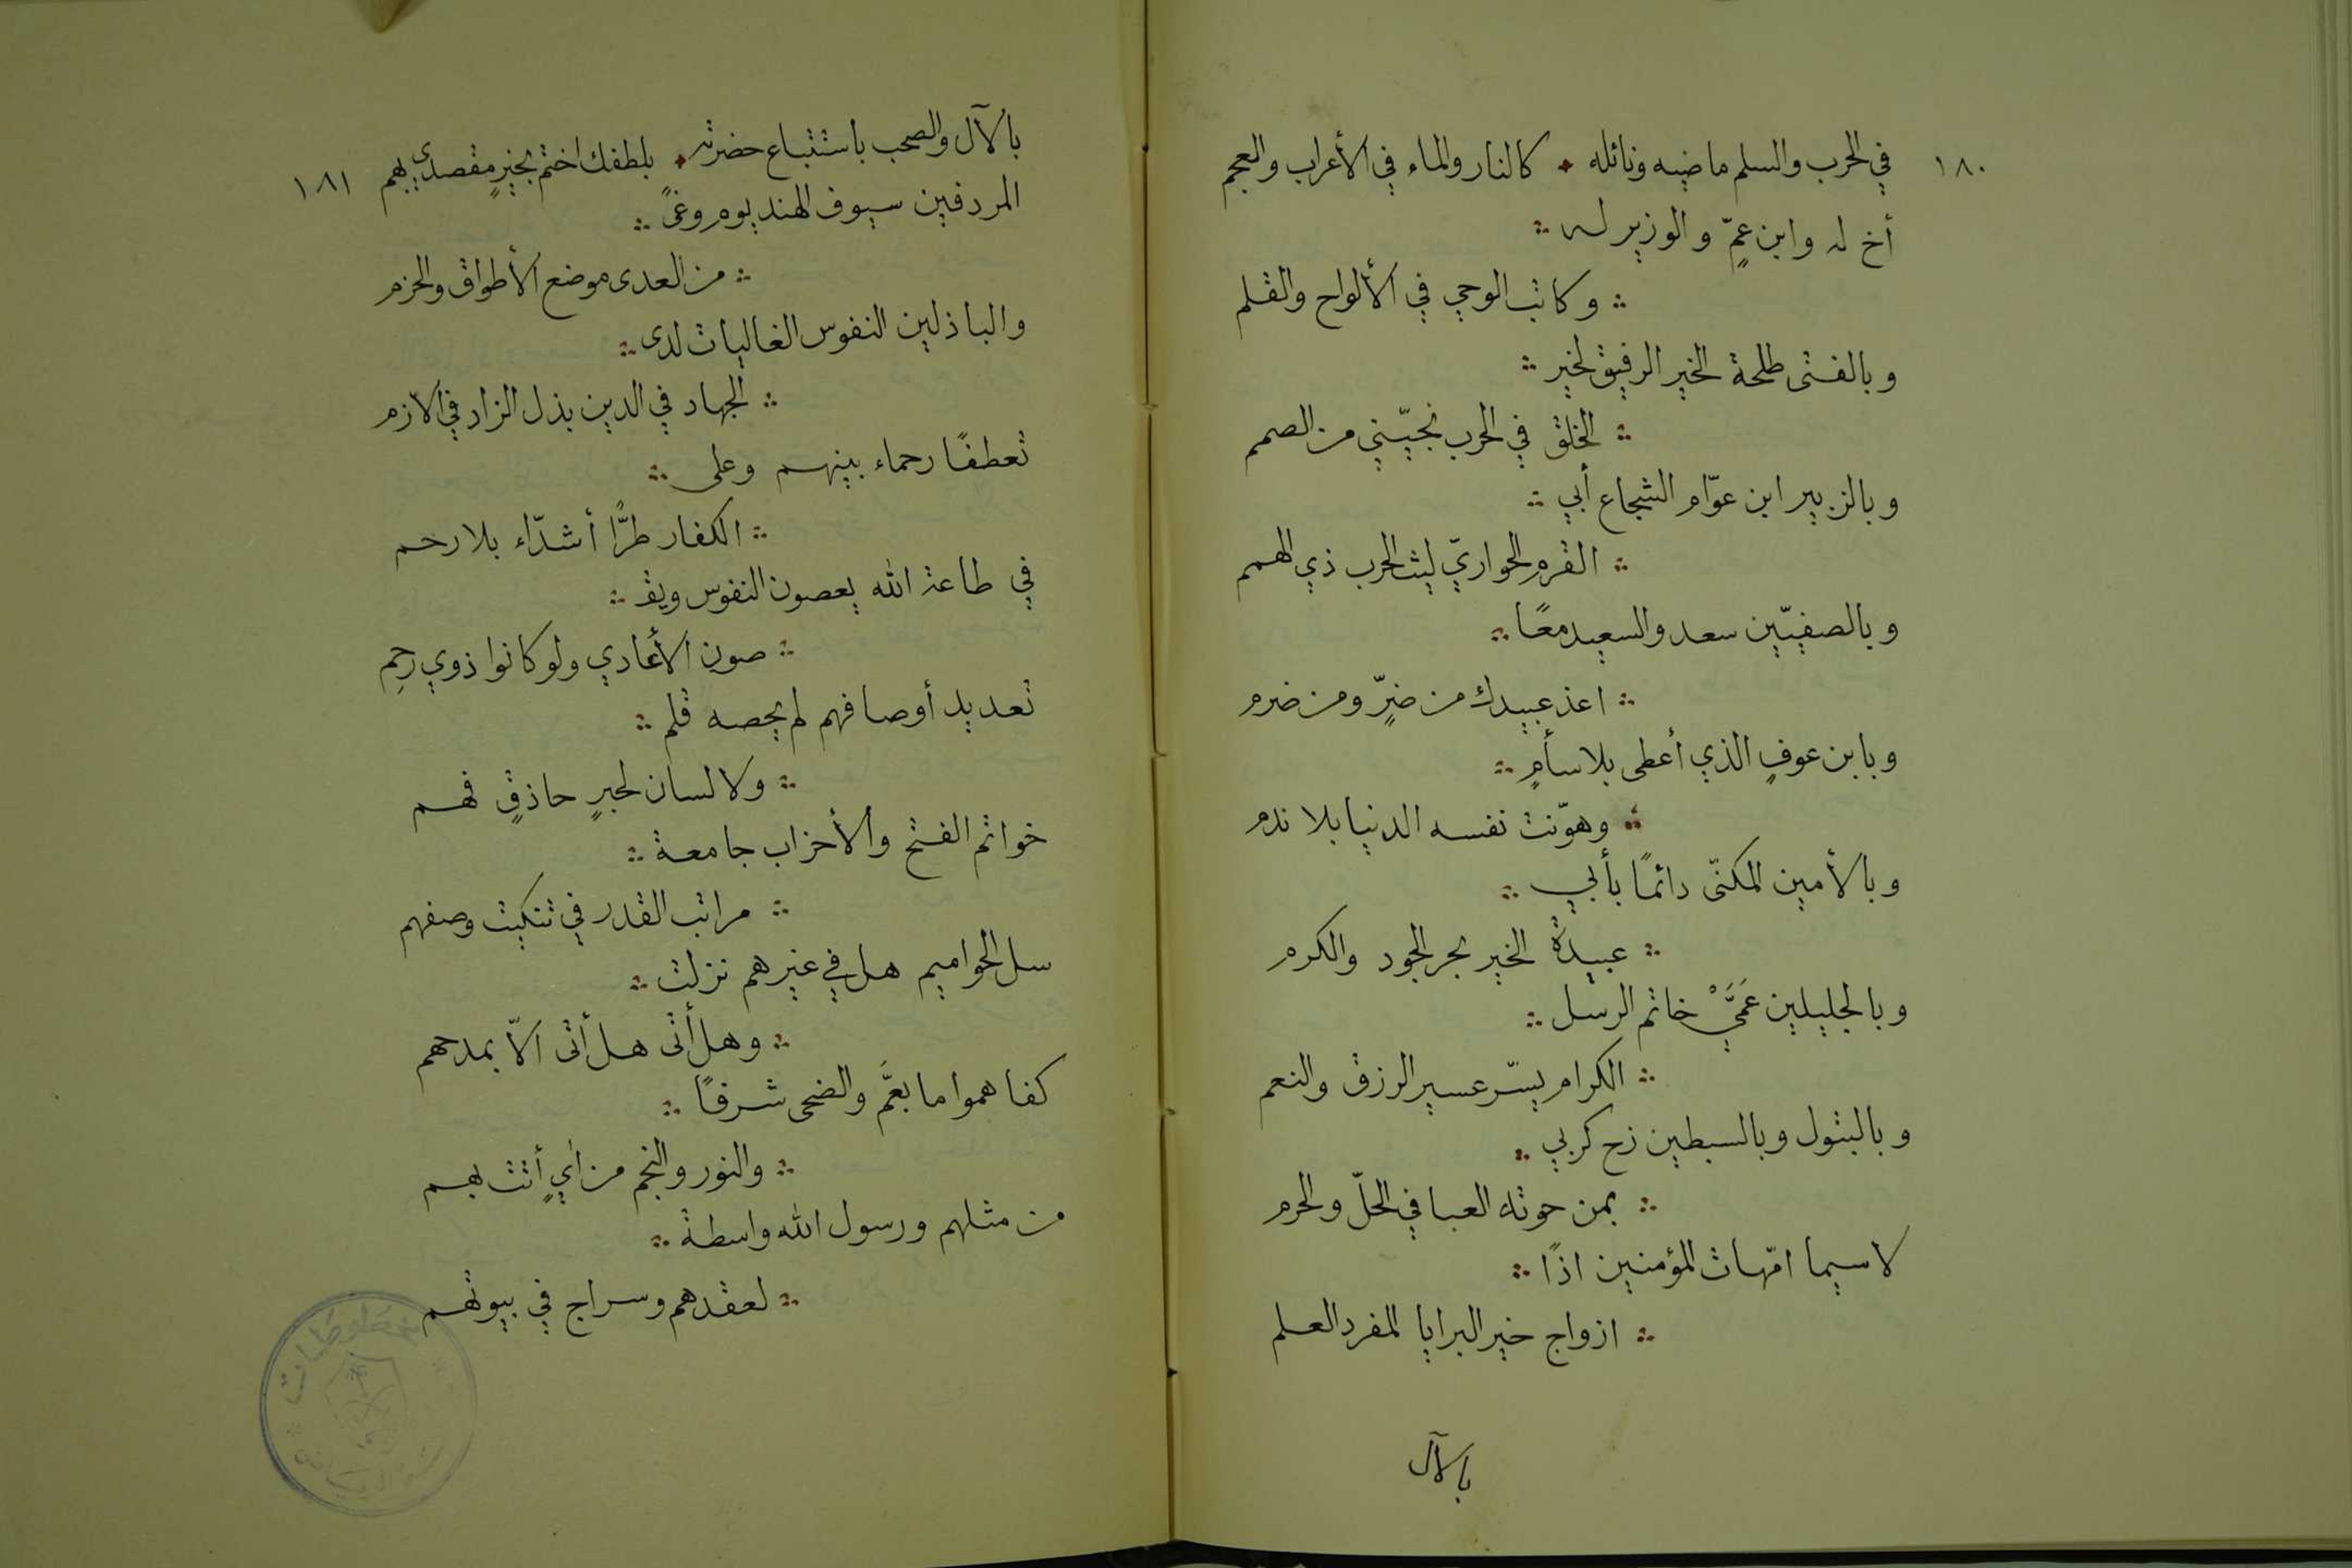 ١٨٠ في الحرب والسلم ماضيه ونائله ؞ كالنار والماء في الأعراب والعجم
أخ له وابن عمٍّ والوزير له ؞
؞ وكاتب الوحي في الألواح والقلم
وبالفتى طلحة الخير الرفيق لخير ؞
؞ الخلق في الحرب نجيّني من الصمم
وبالزبير ابن عوّام الشجاع أبي ؞
؞ القرم الحواريّ ليث الحرب ذي الهمم
وبالصفيّين سعد والسعيد معًا ؞
؞ اعذ عبيدك من ضرٍّ ومن ضرم
وبابن عوفٍ الذي أعطى بلا سأمٍ ؞
؞ وهوّنت نفسه الدنيا بلا ندم
وبالأمين المكنّى دائمًا بأبي ؞
؞ عبيدة الخير بحر الجود والكرم
وبالجليلين عَمَّيْ خاتم الرسل ؞
؞ الكرام يسّر عسير الرزق والنعم
وبالبتول وبالسبطين زح كربي ؞
؞ بمن حوته العبا في الحلّ والحرم
لاسيما امّهات المؤمنين اذًا ؞
؞ ازواج خير البرايا المفرد العلم
بالآل
بالآل والصحب باستتباع حضرته ؞ بلطفك اختم بخيرٍ مقصدي بهم ١٨١
المردفين سيوف الهند يوم وغىً ؞
؞ من العدى موضع الأطواق والحزم
والباذلين النفوس الغاليات لدى ؞
؞ الجهاد في الدين بذل الزاد في الازم
تعطفًا رحماء بينهم وعلى ؞
؞ الكفار طرًّا أشدّاء بلا رحم
في طاعة الله يعصون النفوس ويقـ ؞
؞ صون الأعادي ولو كانوا ذوي رَحِمِ
تعديد أوصافهم لم يحصه قلم ؞
؞ ولا لسان لحبرٍ حاذقٍ فهم
خواتم الفتح والأحزاب جامعة ؞
؞ مراتب القدر في تنكيت وصفهم
سل الحواميم هل في غيرهم نزلت ؞
؞ وهل أتى هل أتى الاّ بمدحهم
كفاهموا ما بعَمَّ والضحى شرفًا ؞
؞ والنور والنجم من آيٍ أتت بهم
من مثلهم ورسول الله واسطة ؞
؞ لعقدهم وسراج في بيوتهم
مخطوطات